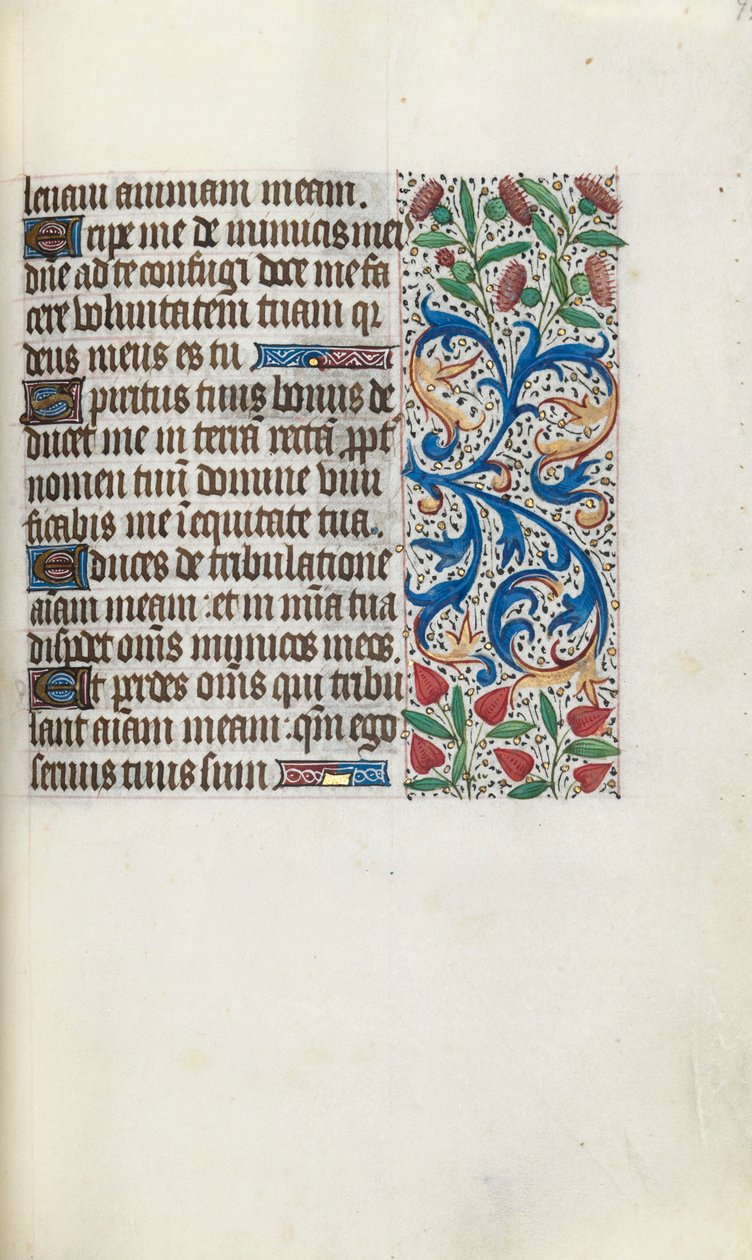 leuaui animam meam.
Eripe me de inimicis meis
dn̄e ad te confugi doce me fa
cere voluntatem̄ tuam qꝛ
deus meus es tu
Spiritus tuus bonus de
ducet me in terrā rectā ꝓpt̄
nomen tuū domine viui
ficabis me ī equitate tua.
Educes de tribulatione
aīam meam : et in mīa tua
dispdet om̄s inimicos meos.
Et ꝑdes om̄s qui tribu
lant aīam meam : qm̄ ego
seruus tuus sum